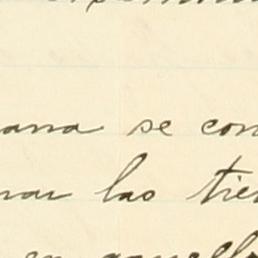 ana se con
nar las tie
en aquell